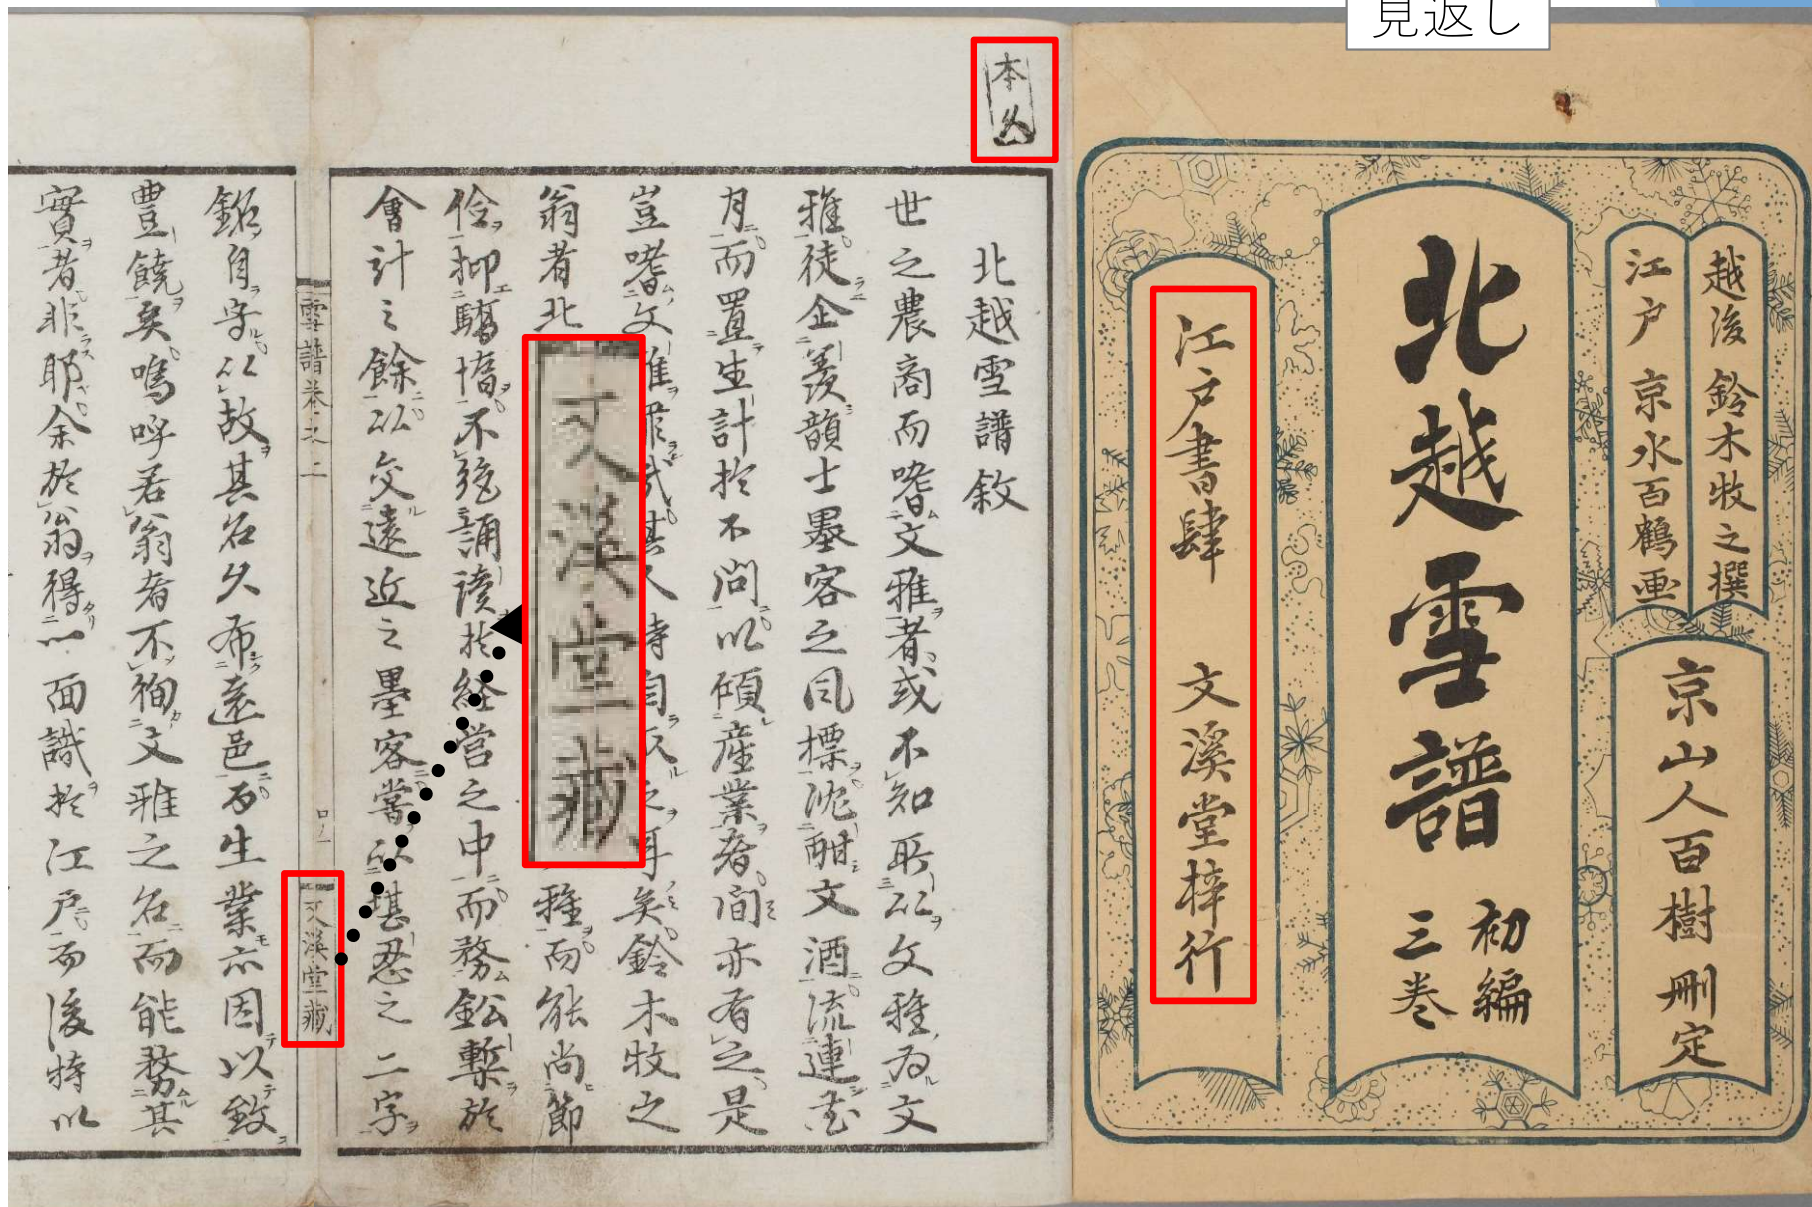 見返し
越後 鈴木牧之撰
江戸 京水百鶴画
京山人百樹 刪定
北越雪譜
初編
三巻
江戸書肆 文溪堂梓行
本
北越雪譜敘
世之農商而嗜文雅者或不知所以文雅為文
雅徒企羨韻士墨客之風標沈酣文酒流連花
月而置生計於不問以傾産業者間亦有之是
豈嗜文雅罪哉其人特自之耳矣鈴木牧之
翁者北雅而能尚節
儉抑驕惰不絶誦讀於経営之中而務鈆槧於
會計之餘以交遠近之墨客嘗以堪忍之二字
文溪堂藏
雪譜巻之
文溪堂藏
銘自守以故其名久布遠邑而生業亦因以致
豊饒矣嗚呼若翁者不徇文雅之名而能務其
實者非耶余於翁得一面識於江戸而後特以